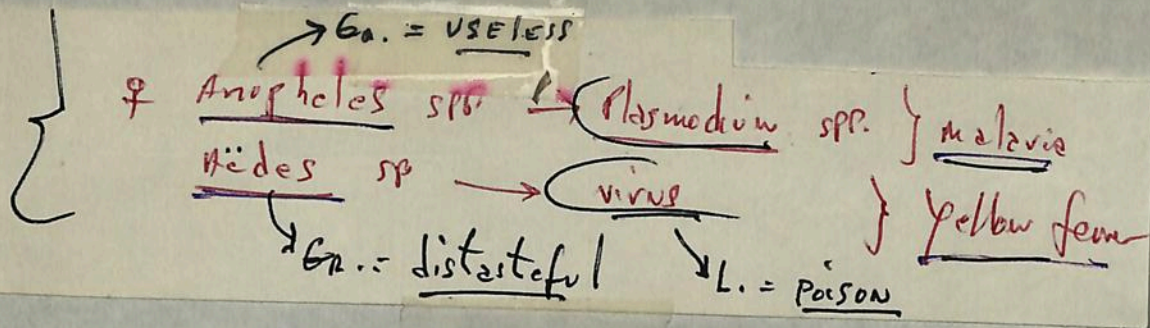 → Gr. = USELESS
♀ Anopheles spp. → Plasmodium spp. } malaria
Aëdes sp → virus } Yellow fever
Gr. = distasteful
L. = poison